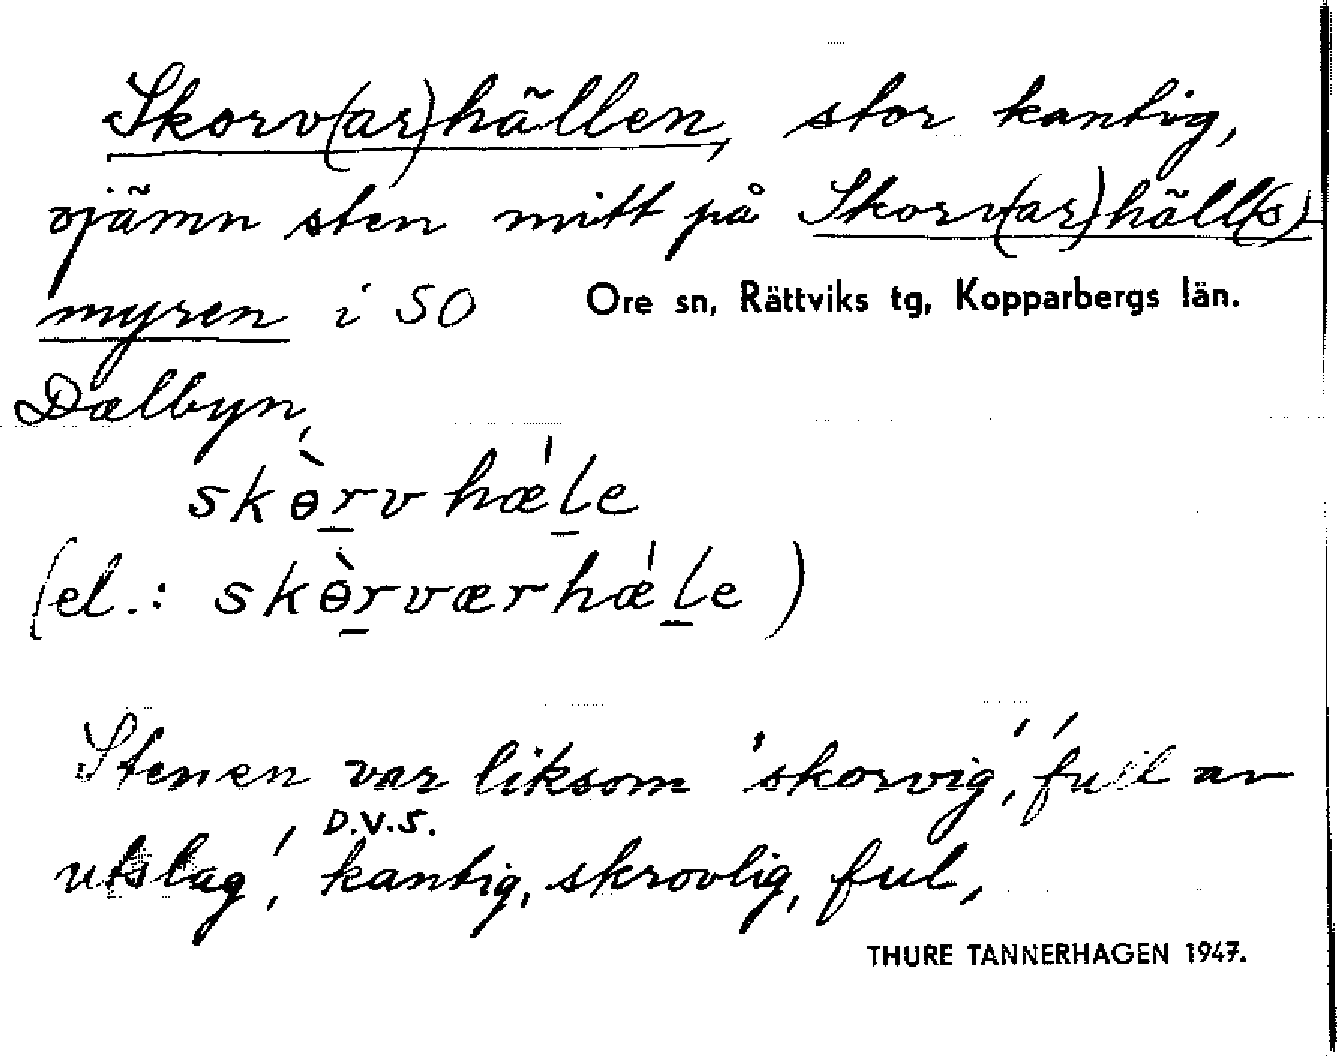 Skorv(ar)hällen, stor kantig,
ojämn sten mitt på Skorv(ar)häll(s)-
myren i SO Ore sn, Rättviks tg, Kopparbergs län.
Dalbyn,
skɵ̀r̲v hǽl̲e
(el.: skɵ̀r̲værhǽl̲e)
Stenen var liksom 'skorvig', 'full av
utslag', D.V.S. kantig, skrovlig, ful,
THURE TANNERHAGEN 1947.